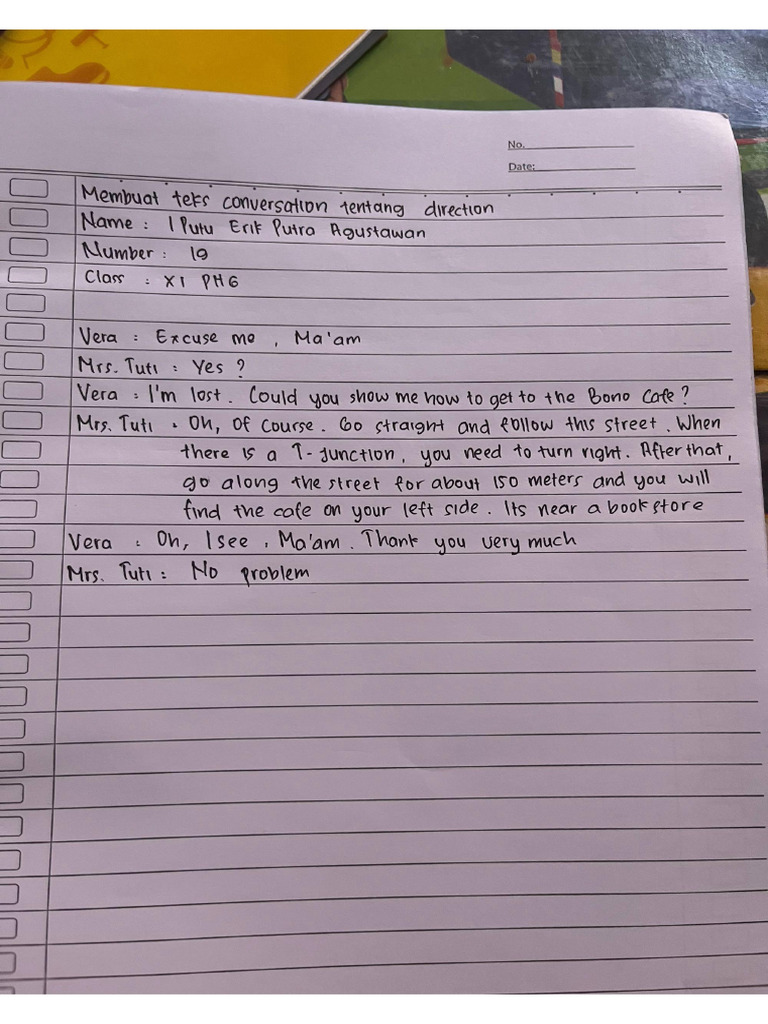 No.
Date:
Membuat teks conversation tentang direction
Name : I Putu Erik Putra Agustawan
Number : 19
Class : XI PH 6
Vera : Excuse me , Ma'am
Mrs. Tuti : Yes ?
Vera : I'm lost . Could you show me how to get to the Bono Cafe ?
Mrs. Tuti : Oh, Of Course . Go straight and follow this street . When
there is a T-Junction, you need to turn right. After that,
go along the street for about 150 meters and you will
find the cafe on your left side . Its near a book store
Vera : Oh, I see , Ma'am . Thank you very much
Mrs. Tuti : No problem